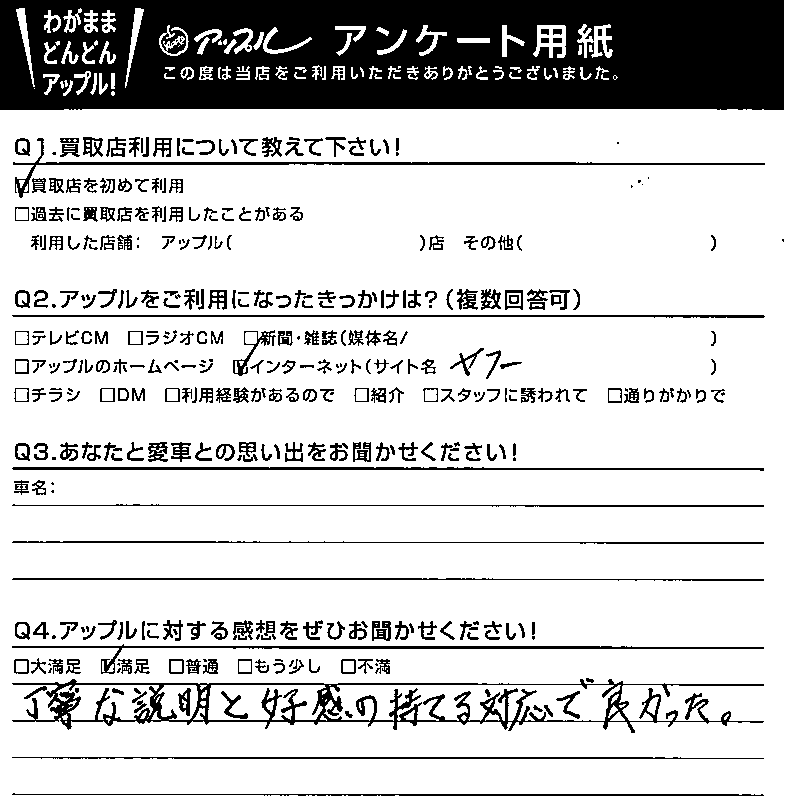 わがまま
どんどん
アップル!
Apple アップル アンケート用紙
この度は当店をご利用いただきありがとうございました。
Q1.買取店利用について教えて下さい!
☑買取店を初めて利用
□過去に買取店を利用したことがある
利用した店舗: アップル( )店 その他( )
Q2.アップルをご利用になったきっかけは?(複数回答可)
□テレビCM □ラジオCM □新聞・雑誌(媒体名/ )
□アップルのホームページ ☑インターネット(サイト名 ヤフー )
□チラシ □DM □利用経験があるので □紹介 □スタッフに誘われて □通りがかりで
Q3.あなたと愛車との思い出をお聞かせください!
車名:
Q4.アップルに対する感想をぜひお聞かせください!
□大満足 ☑満足 □普通 □もう少し □不満
丁寧な説明と好感の持てる対応で良かった。